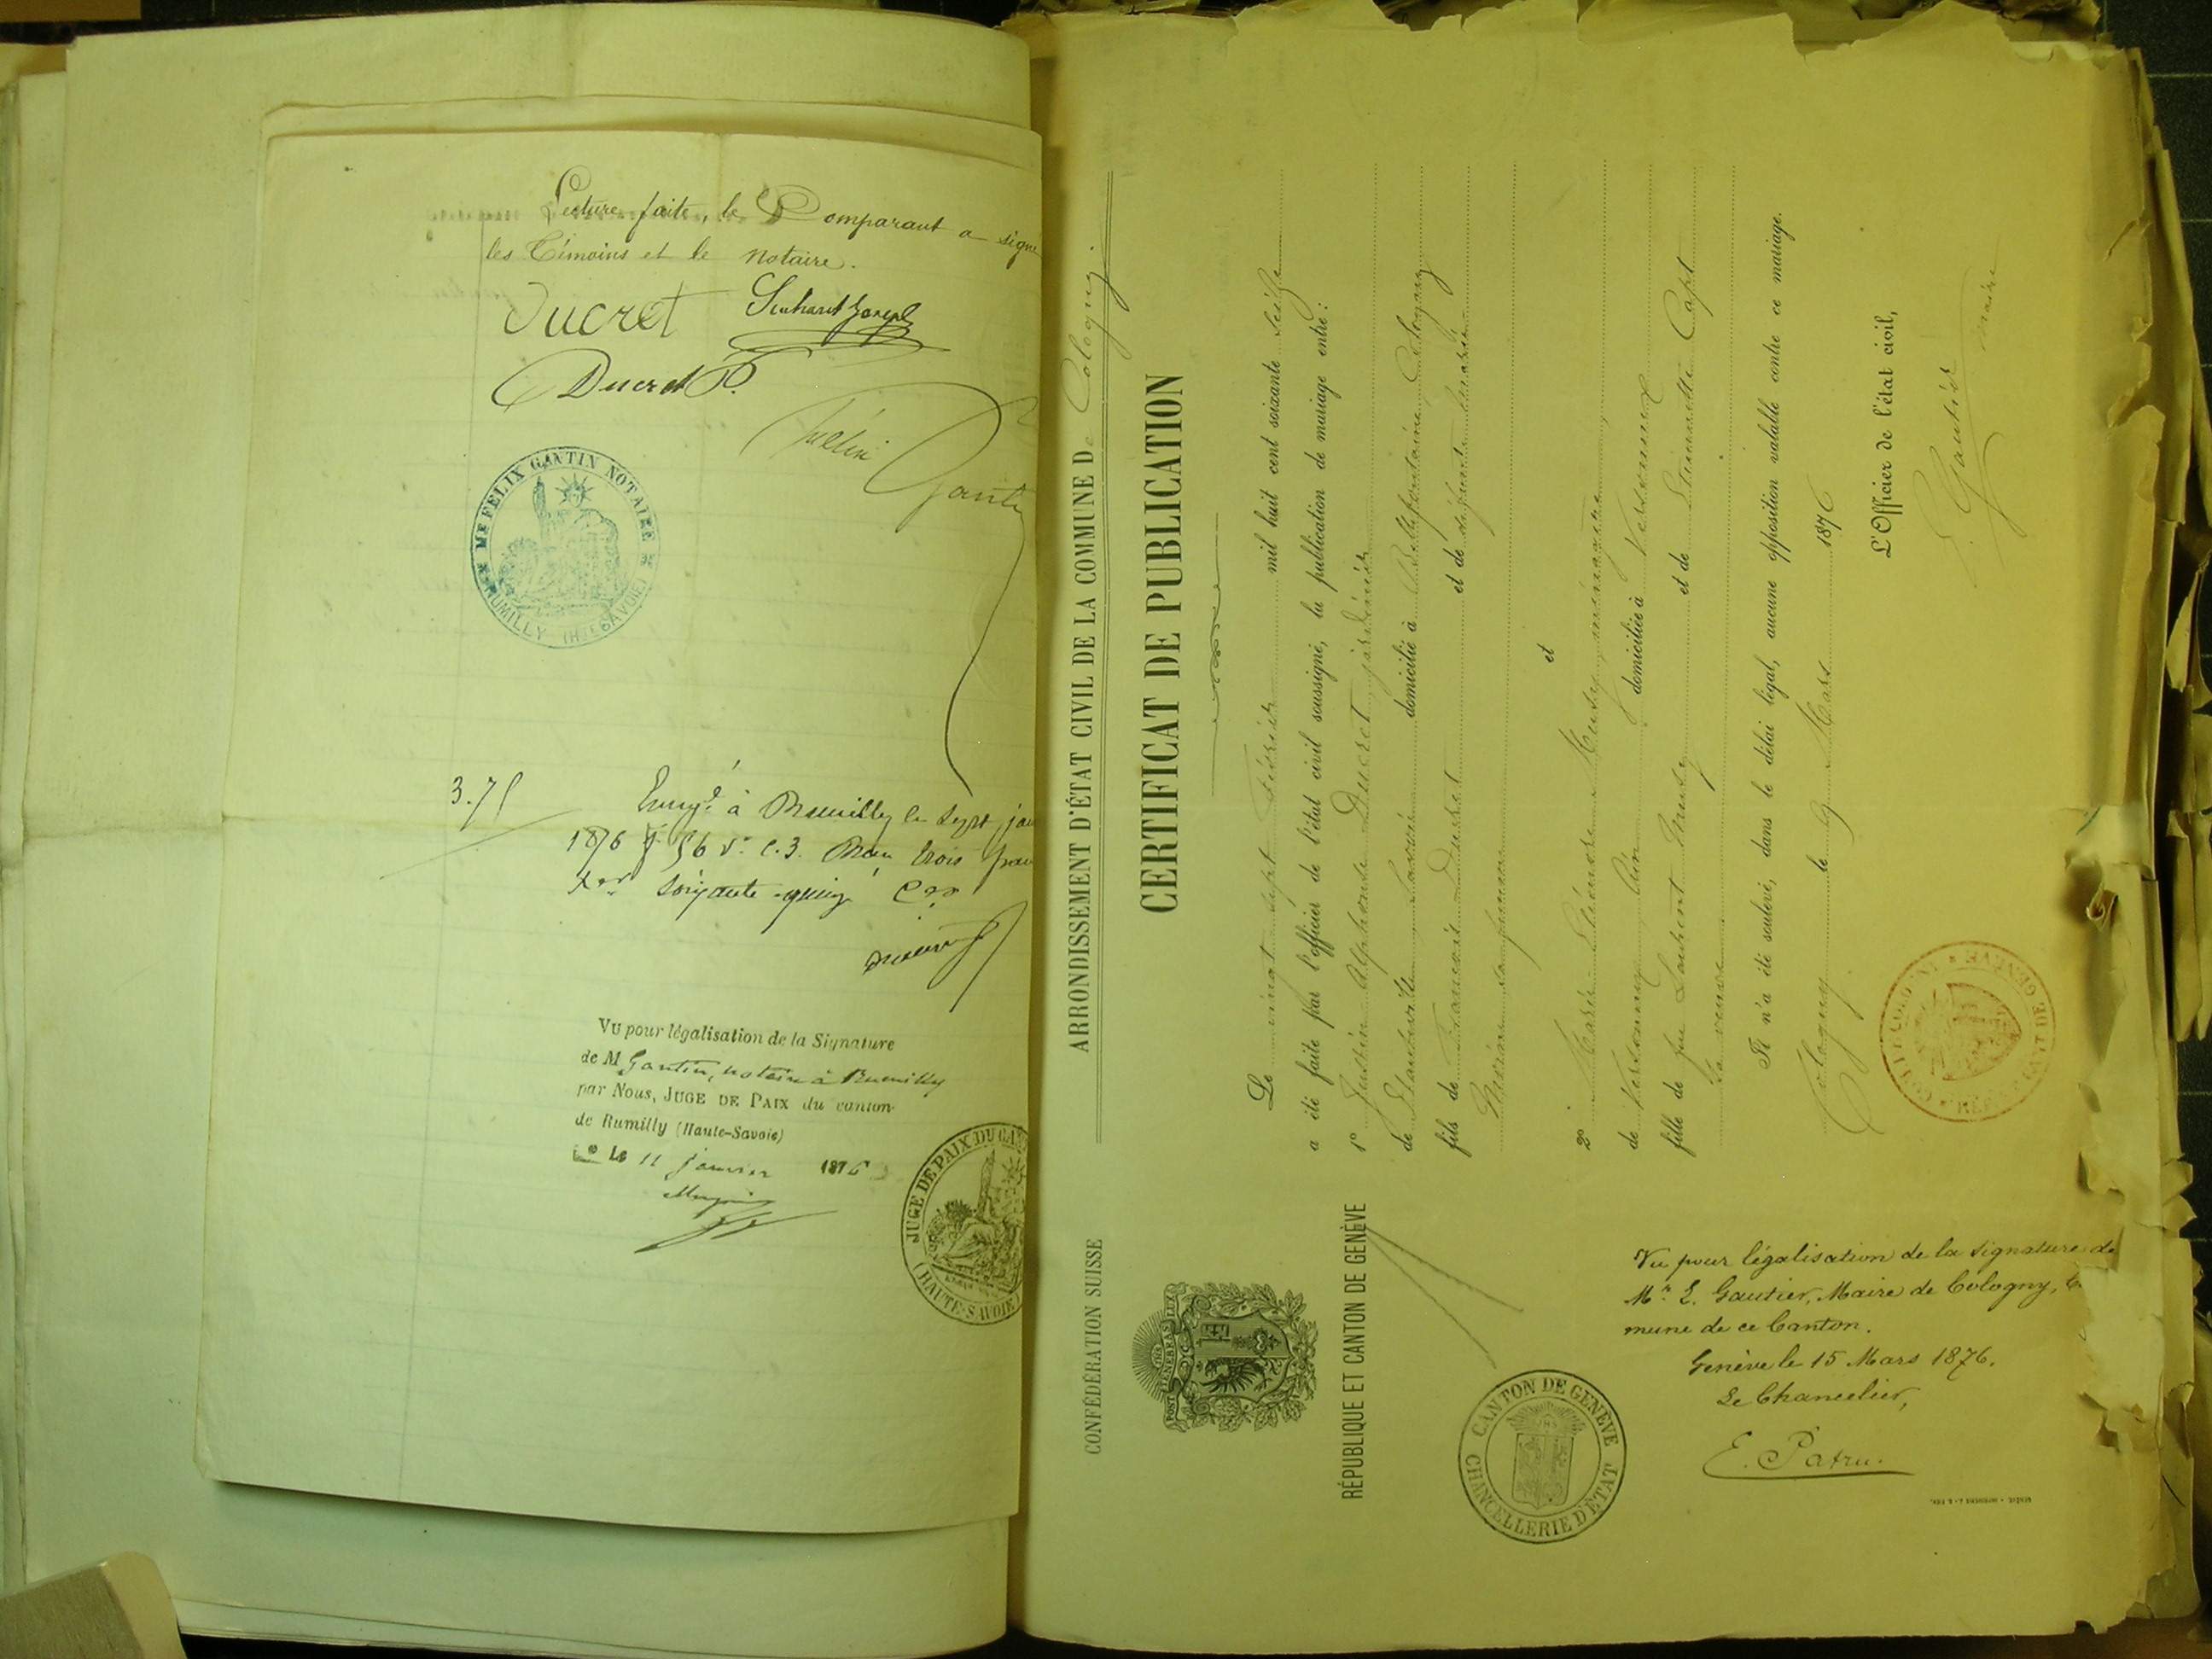 Lecture faite, le Comparant a signé
les Témoins et le notaire.
Ducret
Ducret P.
Me FELIX GANTIN NOTAIRE
RUMILLY (Hte SAVOIE)
3.75
Enregé à Rumilly le sept jan
1876 fo 56 Vo C.3. Reçu trois fran
soixante quinze
Vu pour légalisation de la Signature
de M Gantin, notaire à Rumilly
par Nous, JUGE DE PAIX du canton
de Rumilly (Haute-Savoie)
Le 11 janvier 1876
JUGE DE PAIX DU CAN
(HAUTE-SAVOIE)
CONFÉDÉRATION SUISSE
POST TENEBRAS LUX
RÉPUBLIQUE ET CANTON DE GENÈVE
ARRONDISSEMENT D'ÉTAT CIVIL DE LA COMMUNE De Cologny.
CERTIFICAT DE PUBLICATION
Le vingt sept Février mil huit cent soixante seize
a été faite par l'officier de l'état civil soussigné, la publication de mariage entre:
1° Justin Alphonse Ducret jardinier
de Savoie domicilié à Bellefontaine Cologny
fils de François Ducret et de défunte
sa femme
et
2° Marie Etiennoz Musy, ménagère
de Versonnex Ain domiciliée à Versonnex
fille de feu Laurent Musy et de Etiennette Capt
sa veuve
Il n'a été soulevé, dans le délai légal, aucune opposition valable contre ce mariage.
Cologny le 9 Mars 1876
L'Officier de l'état civil,
L. Gautier maire
COGNY
RÉP. ET CANT. DE GENÈVE
CANTON DE GENÈVE
CHANCELLERIE D'ÉTAT
Vu pour légalisation de la signature de
Mr. L. Gautier, Maire de Cologny,
mune de ce Canton.
Genève le 15 Mars 1876.
Le Chancelier,
E. Patru.